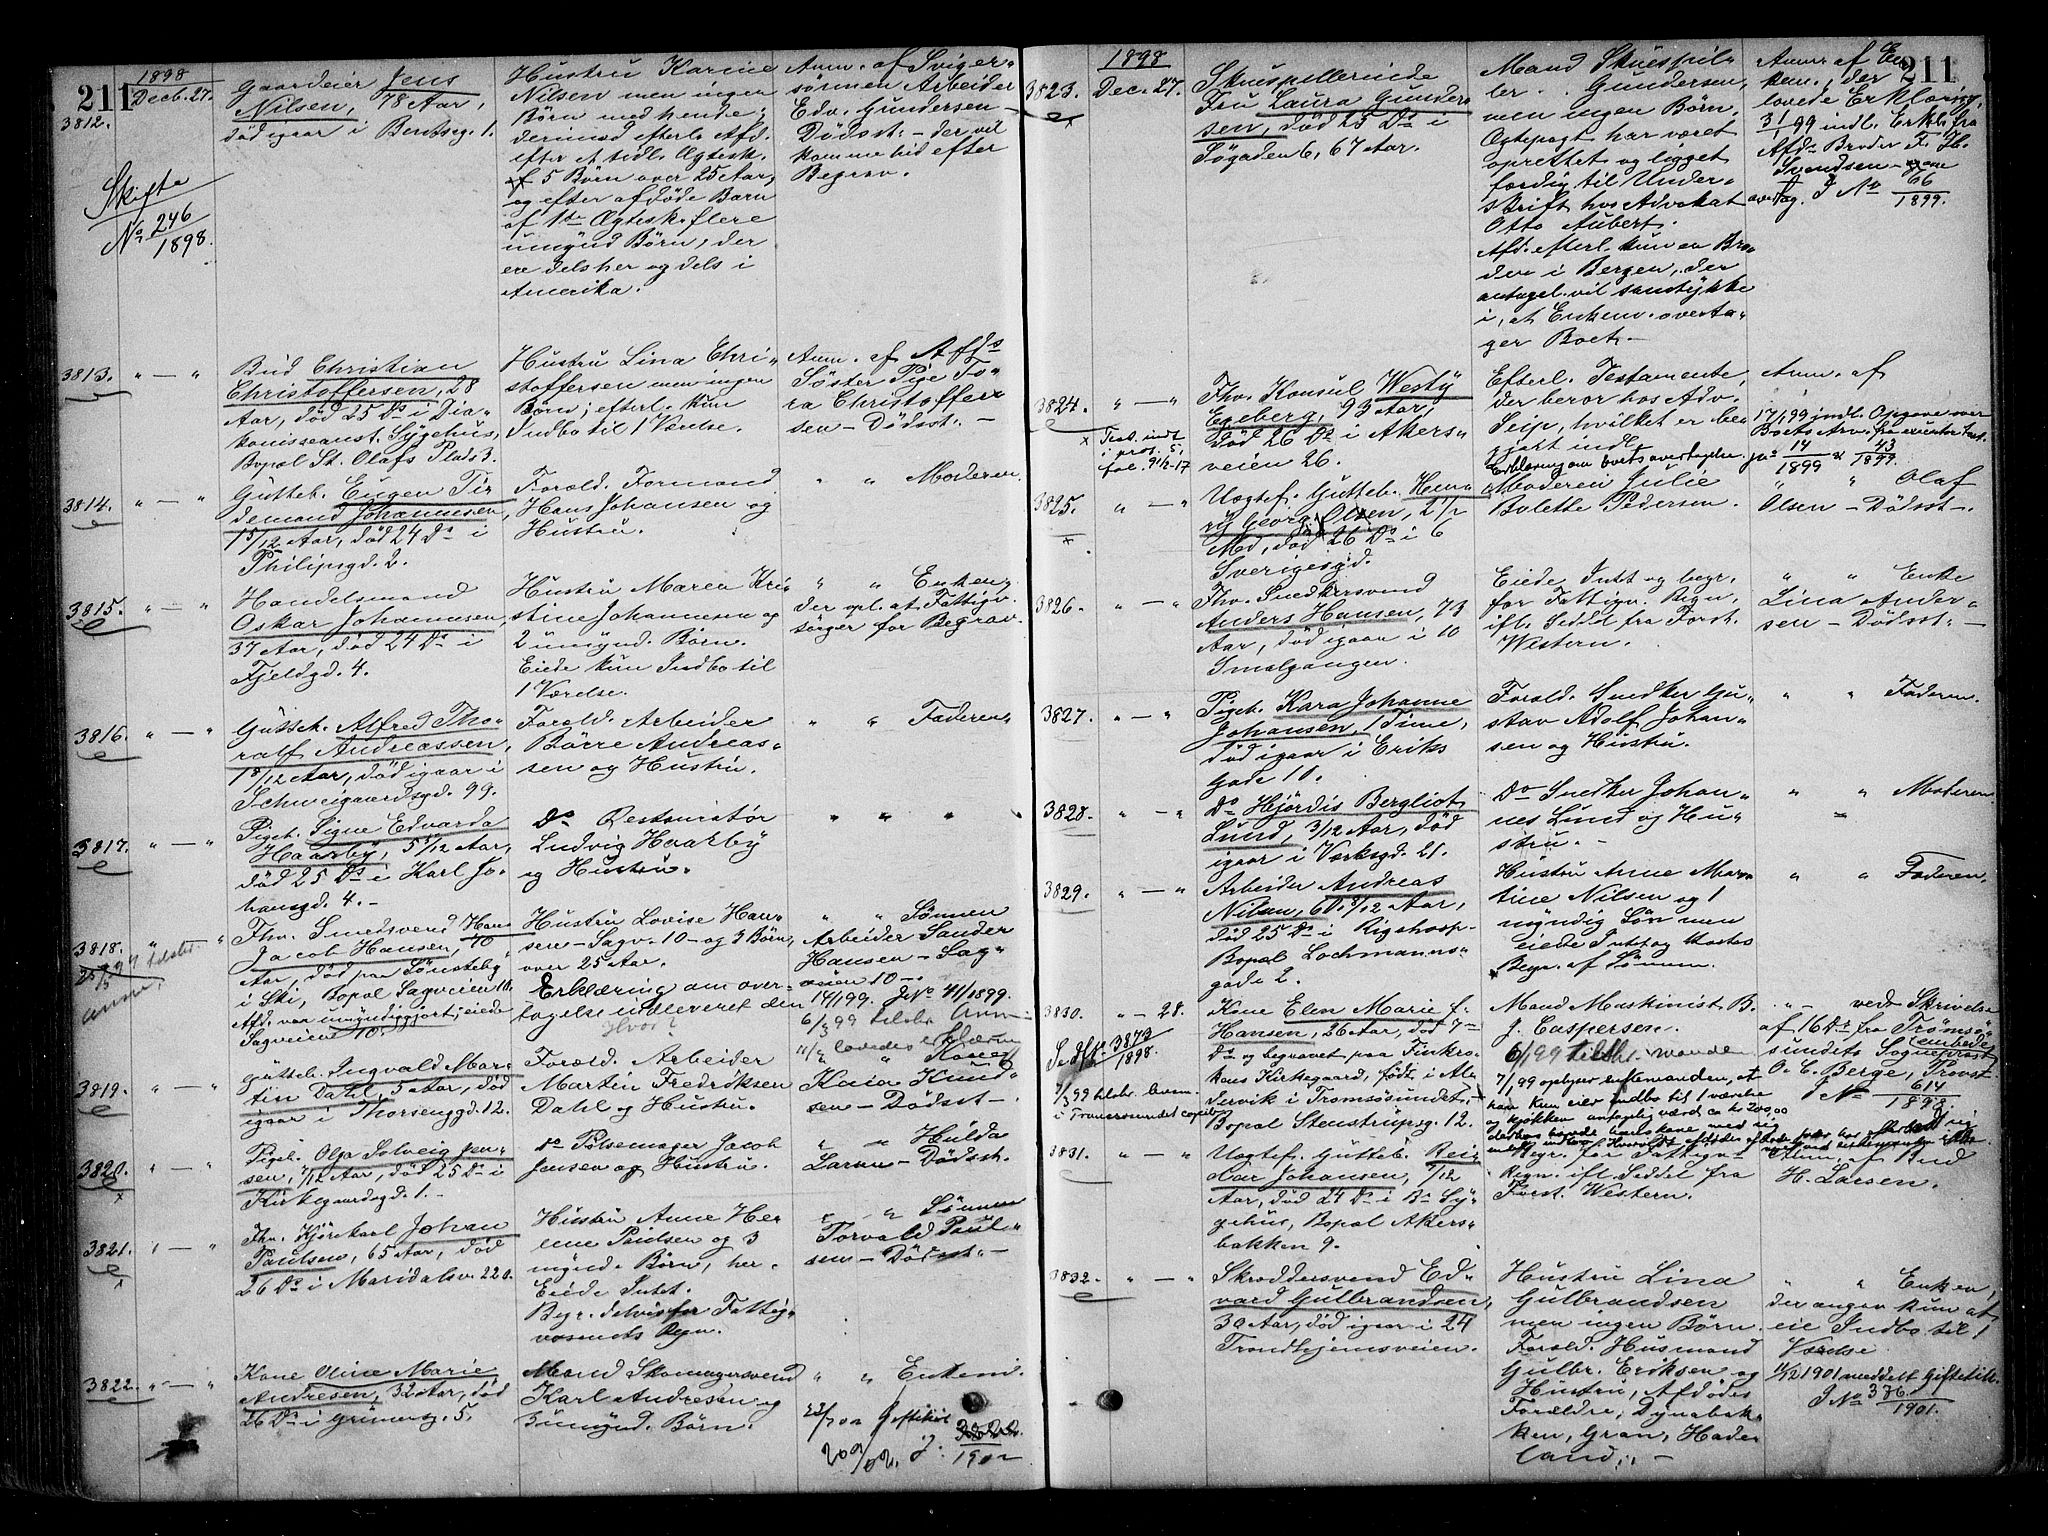 211
1898
Decb. 27.
3812.
Gaardeier Jens
Nilsen, 78 Aar,
død igaar i Berntsg. 1.
Hustru Karine
Nilsen men ingen
Børn med hende;
derimod efterl. Afd.
efter et tidl. Ægtesk.
5 Børn over 25 Aar,
og efter afdøde Barn
af 1ste Ægtesk. flere
umynd Børn, der
ere dels her og dels i
Amerika.
Anm. af Sviger-
sønnen Arbeider
Edv. Gundersen
Dødsst. - der vil
komme hid efter
Begrav.
Skifte
No 246
1898.
3813. " — "
Bud Christian
Christoffersen, 28
Aar, død 25 Ds i Dia-
konisseanst. Sygehus,
Bopæl St. Olafs Plads 3.
Hustru Lina Chri-
stoffersen men ingen
Børn; efterl. kun
Indbo til 1 Værelse.
Anm. af Afds
Søster Pige To-
ra Christoffer-
sen - Dødsst. -
3814. " — "
Gutteb. Eugen Ti-
demand Johannesen,
1 5/12 Aar, død 24 Ds i
Philipsgd. 2.
Foræld. Formand
Hans Johansen og
Hustru.
" " Moderen.
3815. " — "
Handelsmand
Oskar Johannesen,
37 Aar, død 24 Ds i
Fjeldgd. 4.
Hustru Maren Kri-
stine Johannesen og
2 umynd. Børn.
Eiede kun Indbo til
1 Værelse.
" " Enken,
der opl. at Fattigv.
sørger for Begrav.
3816. " — "
Gutteb. Alfred Tho-
ralf Andreassen,
1 8/12 Aar, død igaar i
Schweigaardsgd. 99.
Foræld. Arbeider
Børre Andreas-
sen og Hustru.
" " Faderen.
3817. " — "
Pigeb. Signe Edvarda
Haarby, 5/12 Aar,
død 25 Ds i Karl Jo-
hansgd. 4. -
Do Restauratør
Ludvig Haarby
og Hustru.
" " "
3818. " — "
Fhv. Smedsvend Hans
Jacob Hansen, 70
Aar, død paa Sønsteby
i Ski, Bopæl Sagveien 10.
Afd. var umyndiggjort; eiede
Sagveien 10.
Hustru Lovise Han-
sen - Sagv. 10 - og 3 Børn,
over 25 Aar.
Erklæring om over-
tagelse indleveret den 14/1 99. J.No 41/1899.
" " Sønnen
Arbeider Sander
Hansen - Sag-
veien 10 -
3819. " — "
Gutteb. Ingvald Mar-
tin Dahl, 5 Aar, død
igaar i Thorsenggd. 12.
Foræld. Arbeider
Martin Fredriksen
Dahl og Hustru.
" " Kone
Kaia Knud-
sen - Dødsst -
3820. " — "
Pigeb. Olga Solveig Jen-
sen, 1/12 Aar, død 25 Ds i
Kirkegaardsgd. 1. -
Do Pølsemager Jacob
Jensen og Hustru.
" " Hulda
Larsen - Dødsst.
3821. " — "
Fhv. Kjørekarl Johan
Paulsen, 65 Aar, død
26 Ds i Maridalsv. 220.
Hustru Anne He-
lene Paulsen og 3
mynd. Børn, her.
Eiede Intet.
Begr. delvis for Fattig-
væsenets Regn.
" " Sønnen
Torvald Paul-
sen - Dødsst. -
3822. " — "
Kone Oline Marie
Andresen, 32 Aar, død
26 Ds i Grünersg. 5.
Mand Skomagersvend
Karl Andresen og
3 umynd. Børn.
" " Enkem.
1902
211
1898
3823. Dec. 27.
Skuespillerinde
Fru Laura Gunder-
sen, død 25 Ds i
Søgaden 6, 67 Aar.
Mand Skuespil-
ler . . Gundersen,
men ingen Børn.
Ægtepagt har været
oprettet og ligget
færdig til Under-
skrift hos Advokat
Otto Aubert.
Afd. efterl. kun en Bro-
der i Bergen, der
antagel. vil samtykke
i, at Enkem. overta-
ger Boet. -
Anm. af En-
kem., der
lovede Erklæring.
3/1 99 indl. Erkl. fra
Afds Broder
Svendsen - om
overtag. J No 66
1899.
3824. " — "
Test. indt.
i prot. 5,
fol. 91/2-17
Fhv. Konsul Westÿ
Egeberg, 93 Aar,
død 26 Ds i Akers-
veien 26.
Efterl. Testamente,
der beror hos Adv.
Seip, hvilket er be-
gjært indl.
Erklæring om boets overtagelse, jno 14/1899 & 43/1899.
Anm. af
17/1 99 indl. Opgave over
Boets Arv.
3825. " — "
Uægtef. Gutteb. Hen-
ry Georg Olsen, 2 1/2
Md, død 26 Ds i 6
Sverigesgd.
Moderen Julie
Bolette Pedersen.
" " Olaf
Olsen - Dødsst -.
3826. " — "
Fhv. Snedkersvend
Anders Hansen, 73
Aar, død igaar i 10
Smalgangen.
Eiede Intet og begr.
for Fattigv. Regn,
ifl. Seddel fra Forst.
Western.
" " Enke
Lina Ander-
sen - Dødsst. -
3827. " — "
Pigeb. Kara Johanne
Johansen, 1 Time,
død igaar i Eriks
Gade 10.
Foræld. Snedker Gu-
stav Adolf Johan-
sen og Hustru.
" " Faderen.
3828. " — "
Do Hjördis Bergliot
Lund, 3/12 Aar, død
igaar i Værksgd. 21.
Do Snedker Johan-
nes Lund og Hu-
stru. -
" " Moderen
3829. " — "
Arbeider Andreas
Nilsen, 60 9/12 Aar,
død 25 Ds i Rigshosp-
Bopæl Lochmanns-
gade 2.
Hustru Anne Mar-
tine Nilsen og 1
myndig Søn men
eiede Intet og
Begr. af Sønnen.
" " Faderen.
3830. " - 28.
Se No 3873
1898.
Kone Elen Marie f.
Hansen, 26 Aar, død 7-
Ds og begravet paa Finkro-
kens Kirkegaard, født i
i Tromsøsundet,
Bopæl Stenstrupsg. 12.
Mand Maskinist B.
J. Caspersen.
7/1 99 oplyser enkemanden, at
han kun eier Indbo til 1 værelse
og kjøkken antagelig værd ca kr 200,00
" - ved Skrivelse
af 16 Ds fra Tromsø-
sundets Sogneprest
embede
O. E. Berge, Provst.
J No 614
1898.
3831. " — "
Uægtef. Gutteb. Rei-
dar Johansen, 7/12
Aar, død 24 Ds i Bs Sy-
gehus, Bopæl Akers-
bakken 9.
Begr. for Fattigv.
Regn. ifl. Seddel fra
Forst. Western.
Anm. af Bud
H. Larsen.
3832. " — "
Skræddersvend Ed-
vard Gulbrandsen,
30 Aar, død igaar i 24
Trondhjemsveien.
Hustru Lina
Gulbrandsen
men ingen Børn.
Foræld. Husmand
Gulbr. Eriksen og
Hustru, Afdødes
Forældre, Dynebak-
ken, Gran, Hade-
land. -
" " Enken,
der angav kun at
eie Indbo til 1
Værelse
11/12 1901 meddelt Giftetill.
J No 376
1901.